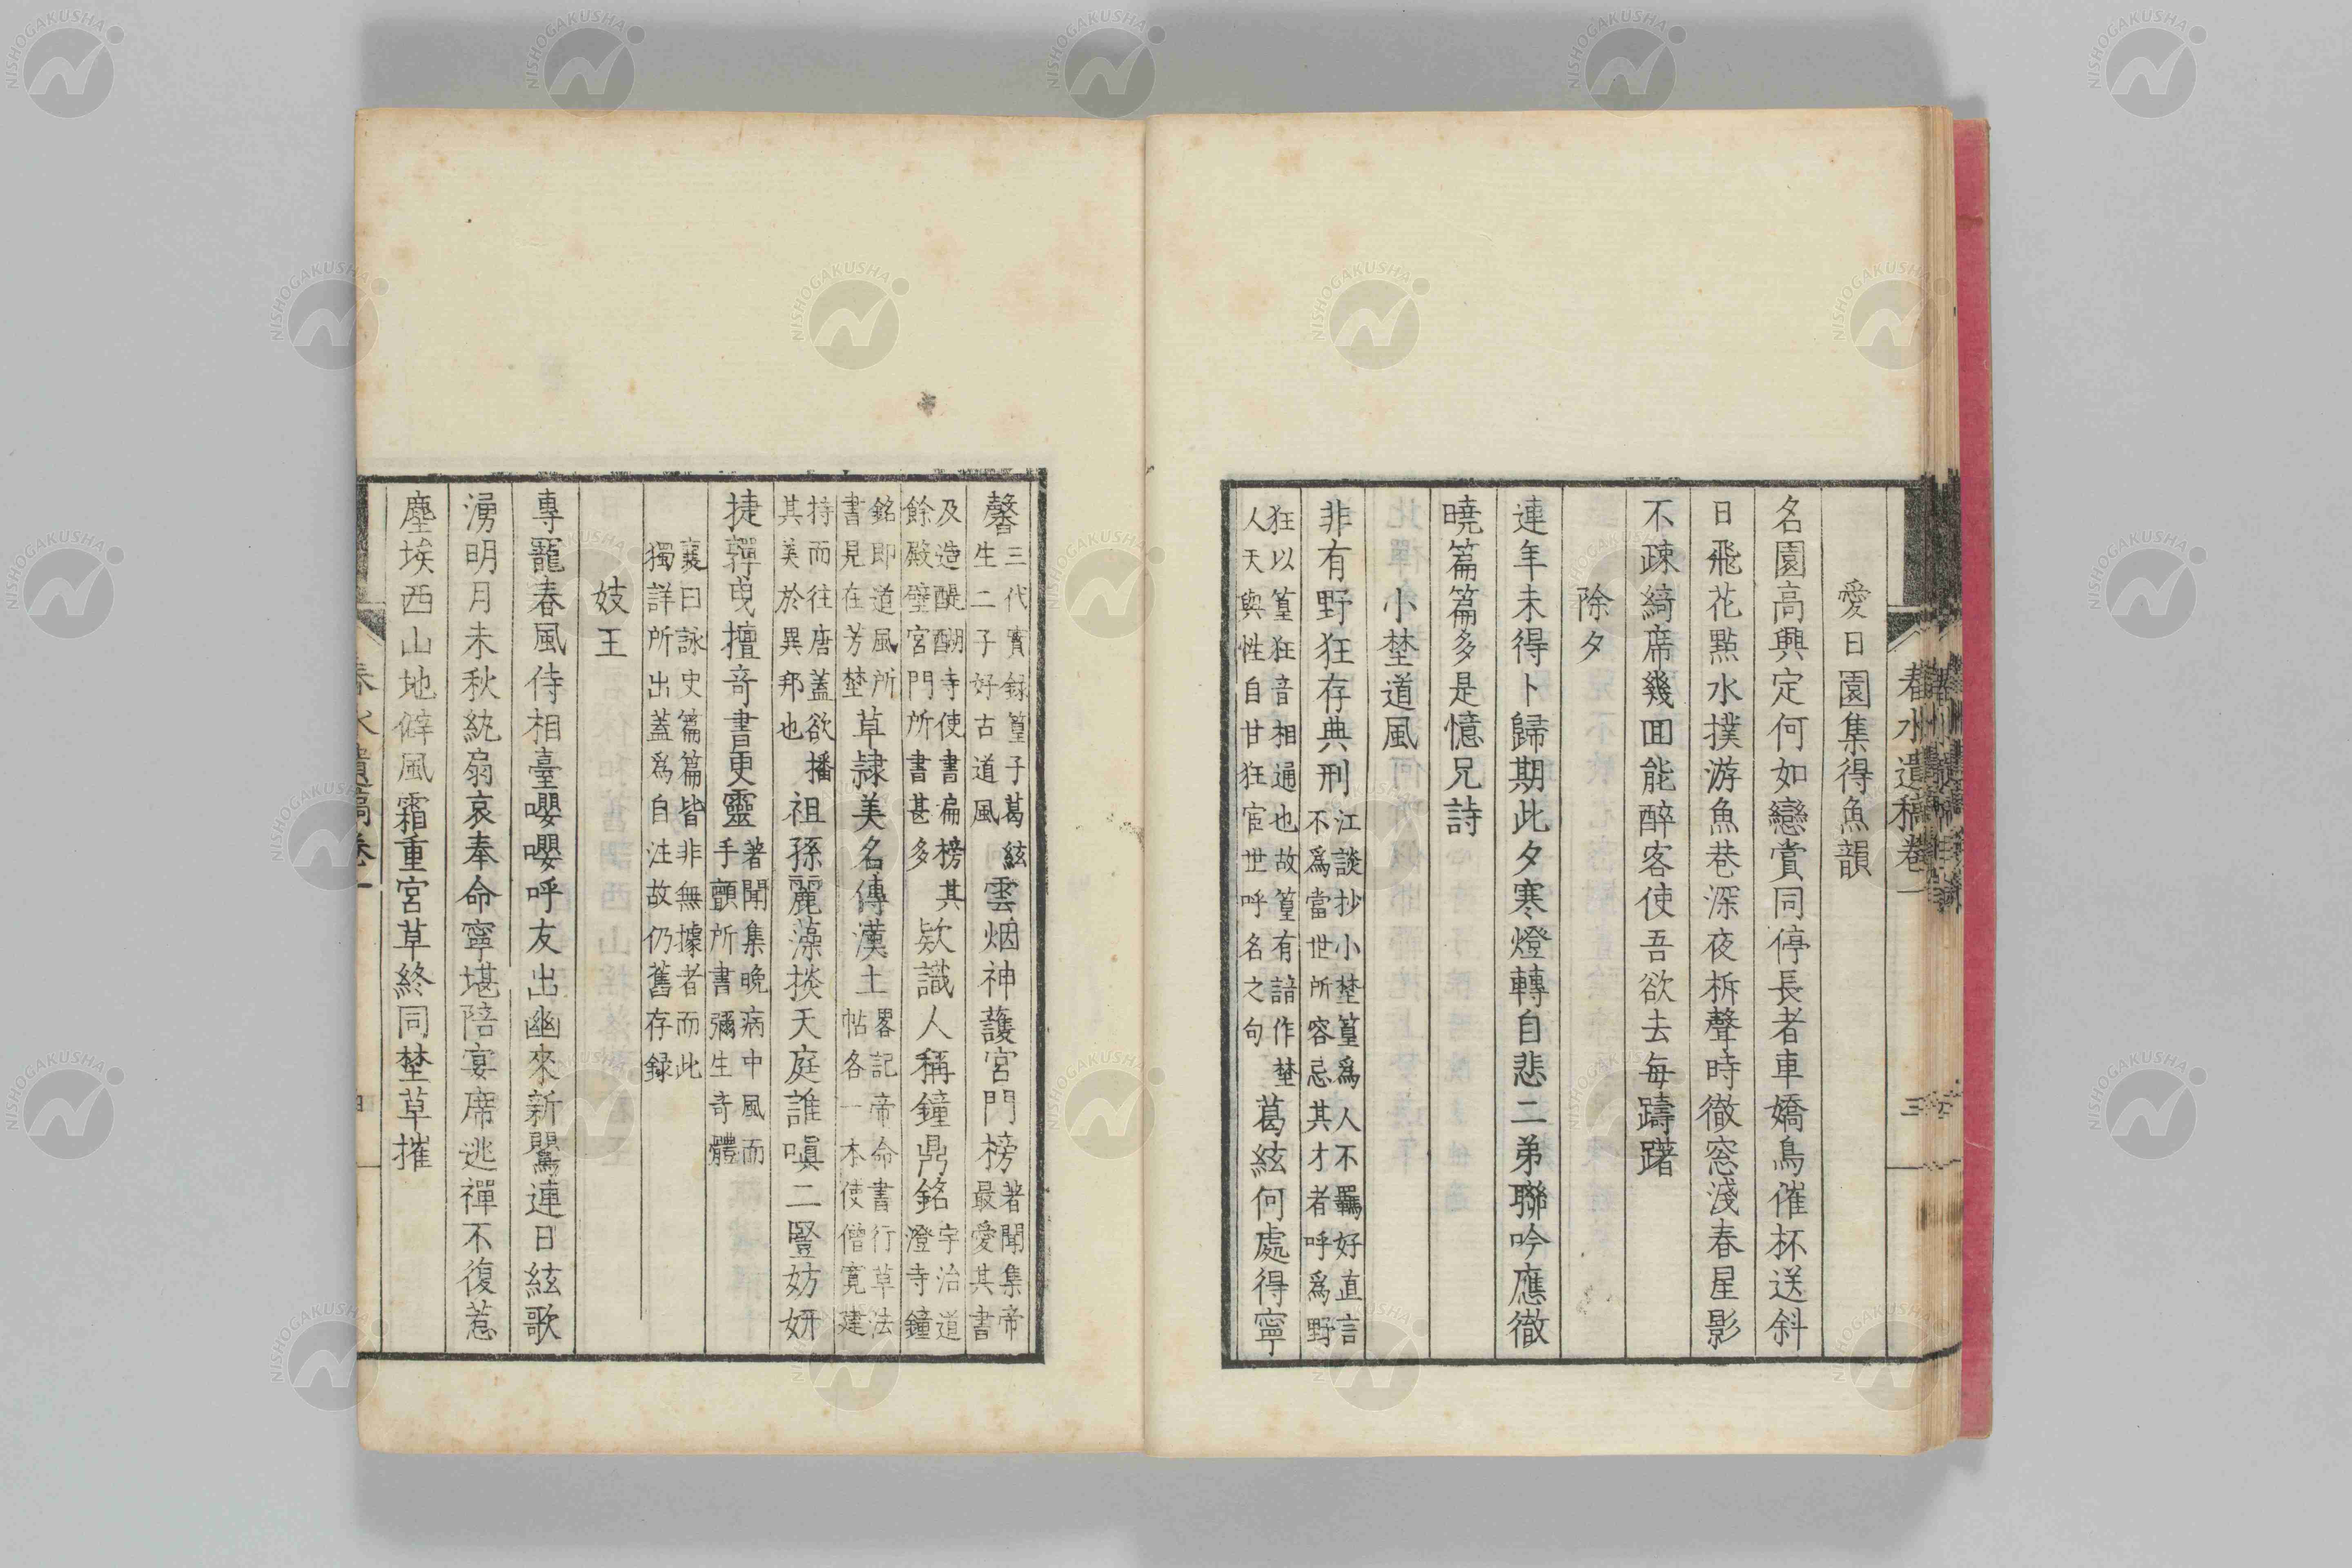 愛日園集得魚韻
名園高興定何如戀賞同停長者車嬌鳥催杯送斜
日飛花點水撲游魚巷深夜柝聲時徹窓淺春星影
不疎綺席幾回能醉客使吾欲去每躊躇
除夕
連年未得卜歸期此夕寒燈轉自悲二弟聯吟應徹
曉篇篇多是憶兄詩
小埜道風
非有野狂存典刑江談抄小埜篁爲人不羈好直言
不爲當世所容忌其才者呼爲野
狂以篁狂音相通也故篁有諳作埜
人天與性自甘狂宦世呼名之句葛絃何處得寧
馨三代實録篁子葛絃
生二子好古道風雲烟神護宮門榜著聞集帝
最愛其書
及造醍醐寺使書扁榜其
餘殿璧宮門所書甚多欵識人稱鐘鼎銘宇治道
澄寺鐘
銘即道風所
書見在芳埜草隷美名傳漢土畧記帝命書行草法
帖各一本使僧寛建
持而往唐蓋欲播
其美於異邦也祖孫麗藻掞天庭誰嗔二豎妨妍
捷嚲曳擅奇書更靈著聞集晩病中風而
手顫所書彌生奇體
襄曰詠史篇篇皆非無據者而此
獨詳所出蓋爲自注故仍舊存録
妓王
專寵春風侍相臺嚶嚶呼友出幽來新鸎連日絃歌
湧明月未秋紈扇哀奉命寧堪陪宴席逃禪不復惹
塵埃西山地僻風霜重宮草終同埜草摧
春水遺稿卷一
三
春水遺稿卷一
NISHOGAKUSHA